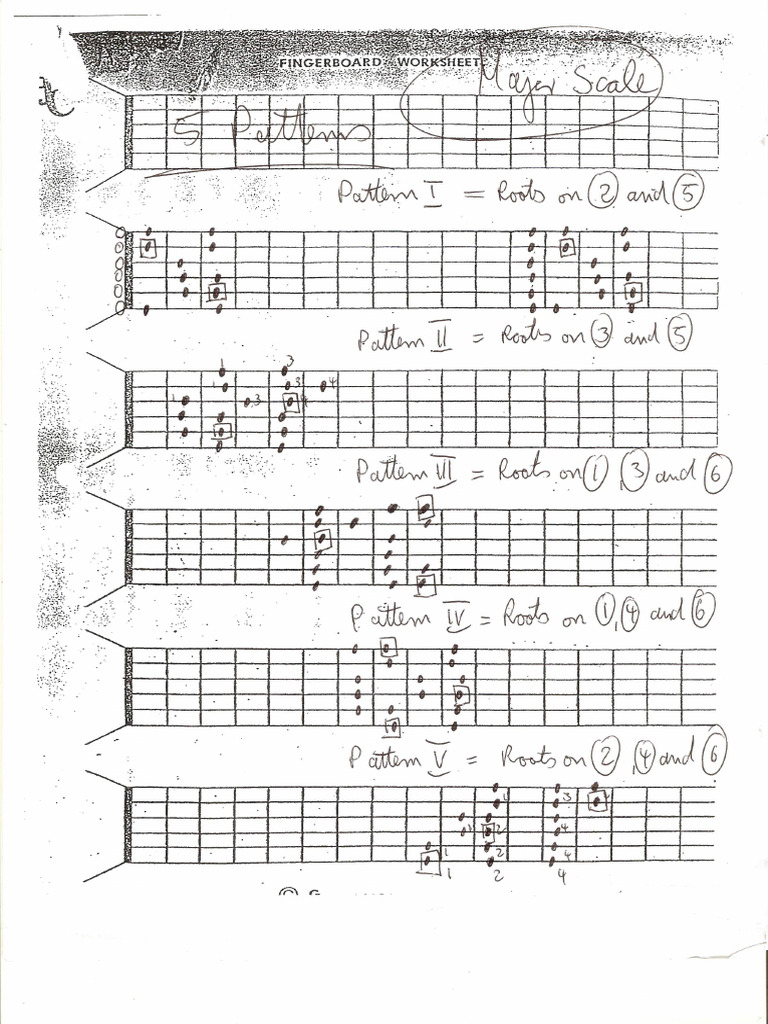 FINGERBOARD WORKSHEET
Major Scale
5 Patterns
Pattern I = Roots on 2 and 5
Pattern II = Roots on 3 and 5
1 3
1 3 4
1 3 4
Pattern III = Roots on 1, 3 and 6
Pattern IV = Roots on 1, 4 and 6
Pattern V = Roots on 2, 4 and 6
1 3 4
1 2 4
1 2 4
1 2 4
©